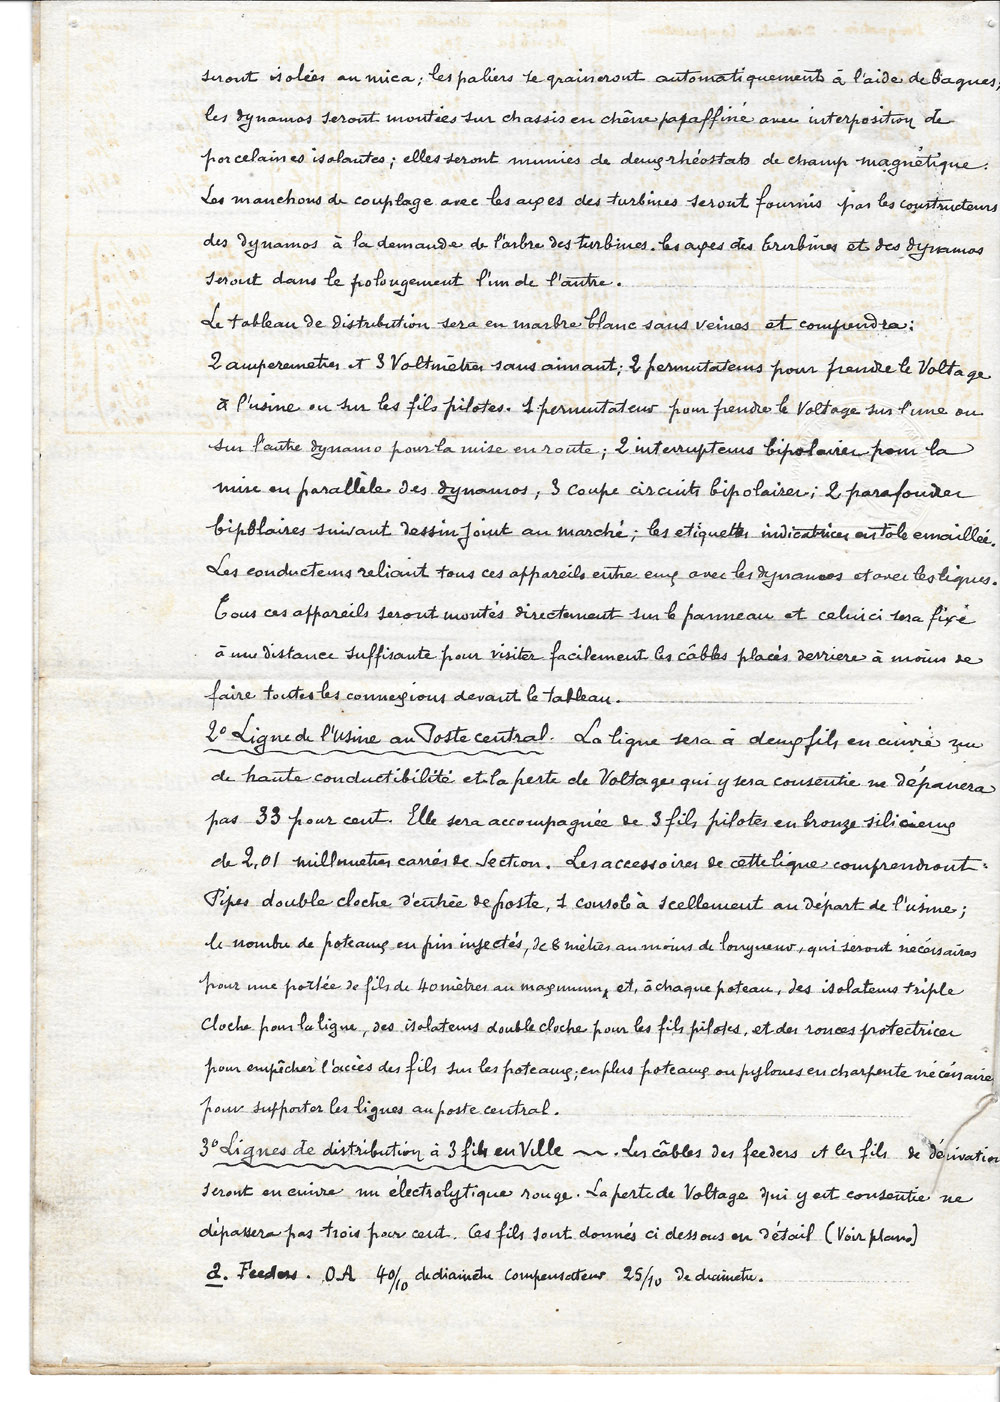 seront isolées au mica; les paliers se graineront automatiquement à l'aide de bagues;
les dynamos seront montées sur chassis en chêne paraffiné avec interposition de
porcelaines isolantes; elles seront munies de deux rhéostats de champ magnétique.
Les manchons de couplage avec les axes des turbines seront fournis par les constructeurs
des dynamos à la demande de l'arbre des turbines. les axes des turbines et des dynamos
seront dans le prolongement l'un de l'autre.
Le tableau de distribution sera en marbre blanc sans veines et comprendra:
2 amperemetres et 3 Voltmètres sans aimant; 2 permutateurs pour prendre le Voltage
à l'usine ou sur les fils pilotes. 1 permutateur pour prendre le Voltage sur l'une ou
sur l'autre dynamo pour la mise en route; 2 interrupteurs bipolaires pour la
mise en parallèle des dynamos; 3 coupe circuits bipolaires; 2 parafoudres
bipolaires suivant dessin joint au marché; les etiquettes indicatrices en tôle emaillée.
Les conducteurs reliant tous ces appareils entre eux avec les dynamos et avec les lignes.
Tous ces appareils seront montés directement sur le panneau et celui ci sera fixé
à une distance suffisante pour visiter facilement les câbles placés derriere à moins de
faire toutes les connexions devant le tableau.
2° Ligne de l'Usine au Poste central. La ligne sera à deux fils en cuivre nu
de haute conductibilité et la perte de Voltage qui y sera consentie ne dépassera
pas 33 pour cent. Elle sera accompagnée de 3 fils pilotes en bronze silicieux
de 2,01 millimetres carrés de Section. Les accessoires de cette ligne comprendront:
Pipes double cloche d'entrée de poste, 1 console à scellement au départ de l'usine;
le nombre de poteaux en pin injectés, de 8 mètres au moins de longueur, qui seront nécéssaires
pour une portée de fils de 40 mètres au maximum, et, à chaque poteau, des isolateurs triple
cloche pour la ligne, des isolateurs double cloche pour les fils pilotes, et des ronces protectrices
pour empêcher l'accès des fils sur les poteaux; en plus poteaux ou pylones en charpente nécéssaire
pour supporter les lignes au poste central.
3° Lignes de distribution à 3 fils en Ville ~. Les câbles des feeders et les fils de dérivation
seront en cuivre nu électrolytique rouge. La perte de Voltage qui y est consentie ne
dépassera pas trois pour cent. Ces fils sont donnés ci dessous en détail (Voir plans)
a. Feeders. OA 40/10 de diamètre compensateur 25/10 de diamètre.